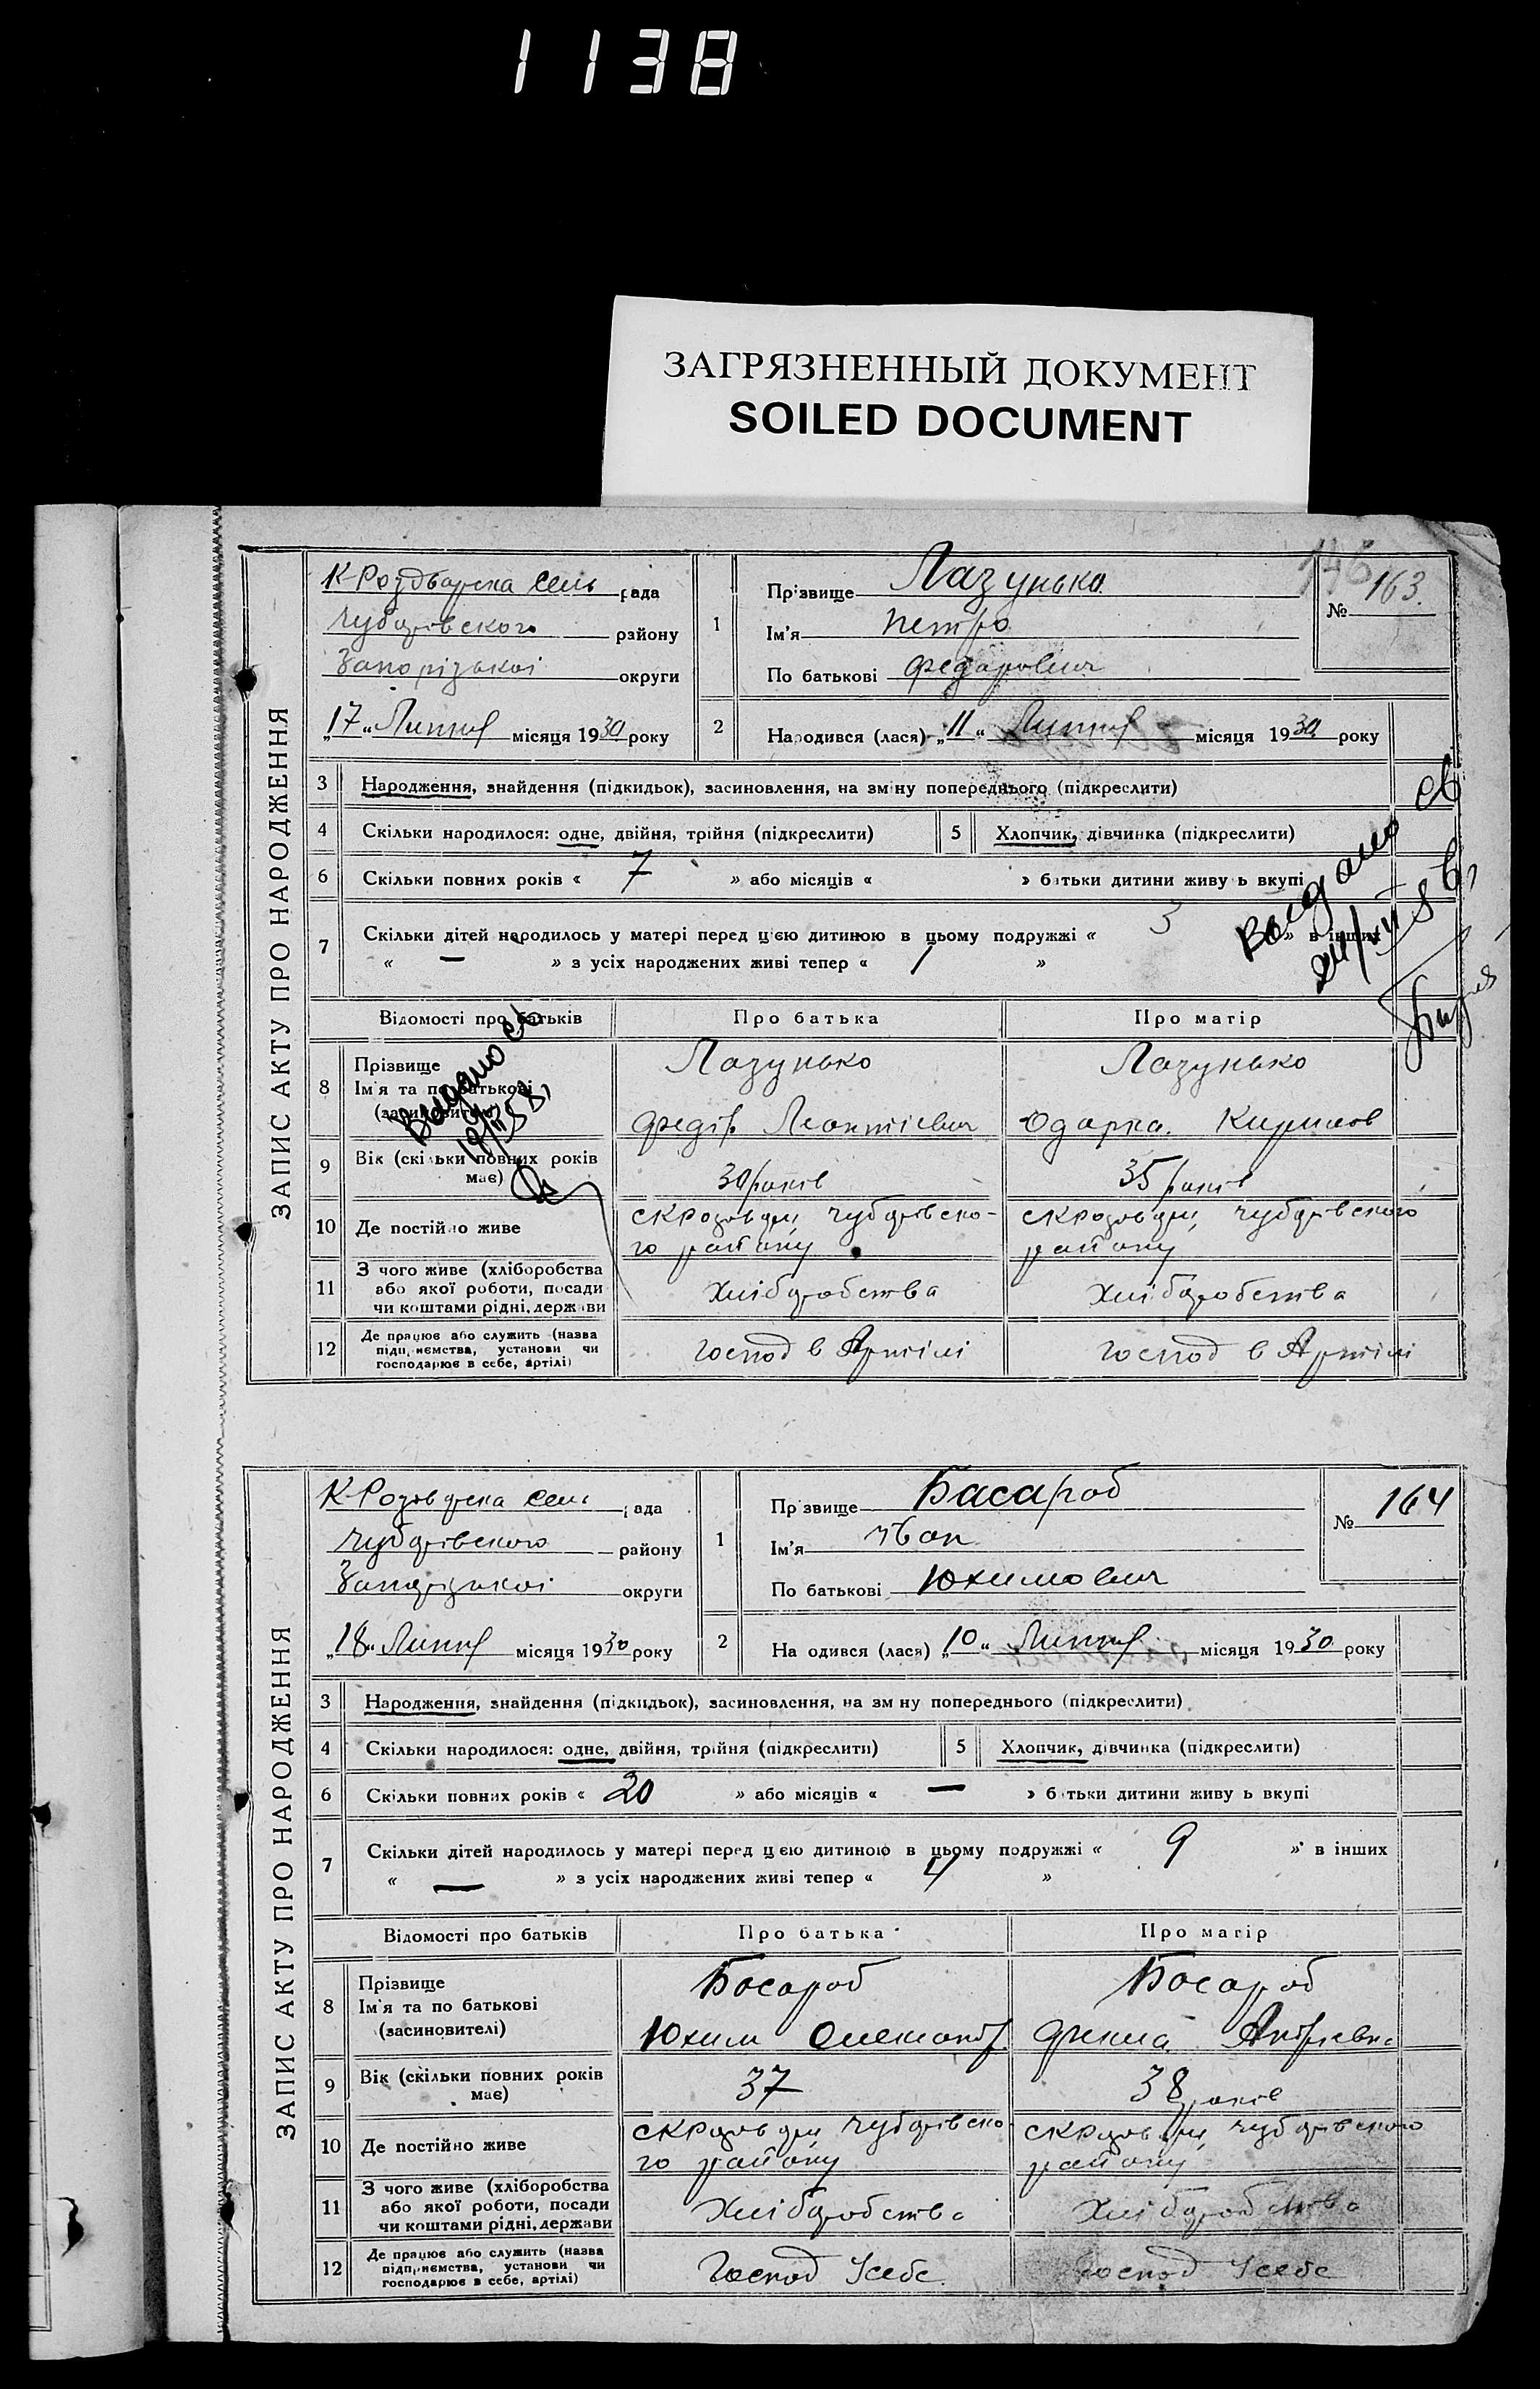 1138
ЗАГРЯЗНЕННЫЙ ДОКУМЕНТ
SOILED DOCUMENT
ЗАПИС АКТУ ПРО НАРОДЖЕННЯ
сель рада
Чубарівского району
Запорізькоі округи
„17“ Липня місяця 1930 року
1
Прізвище Лазунько
Ім'я Петро
По батькові Федарович
146
№ 163.
2 Народився (лася) „11“ Липня місяця 1930 року
3 Народження, знайдення (підкидьок), засиновлення, на зміну попереднього (підкреслити)
4 Скільки народилося: одне, двійня, трійня (підкреслити) 5 Хлопчик, дівчинка (підкреслити)
6 Скільки повних років « 7 » або місяців « » батьки дитини живу ь вкупі
7 Скільки дітей народилось у матері перед цією дитиною в цьому подружжі « 3 » в інших
« — » з усіх народжених живі тепер « 1 »
Выдано св
Відомості про батьків Про батька Про матір
8 Прізвище
Ім'я та по батькові
(засиновителі)
Лазунько
Федір Леонтіевич
Лазунько
Одарка Кирилов
Выдано св
9 Вік (скільки повних років має) 30 років 35 років
10 Де постійно живе
Чубарівско-
го району
Чубарівского
району
11 З чого живе (хліборобства
або якої роботи, посади
чи коштами рідні, держави
Хліборобства Хліборобства
12 Де працює або служить (назва
підприємства, установи чи
господарює в себе, артілі)
Господ в Артілі Господ в Артілі
ЗАПИС АКТУ ПРО НАРОДЖЕННЯ
сель рада
Чубарівского району
Запорізькоі округи
„18“ Липня місяця 1930 року
1
Прізвище Басараб
Ім'я Іван
По батькові Юхимович
№ 164
2 На одився (лася) „10“ Липня місяця 1930 року
3 Народження, знайдення (підкидьок), засиновлення, на зм ну попереднього (підкреслити)
4 Скільки народилося: одне, двійня, трійня (підкреслити) 5 Хлопчик, дівчинка (підкреслити)
6 Скільки повних років « 20 » або місяців « — » б тьки дитини живу ь вкупі
7 Скільки дітей народилось у матері перед цією дитиною в цьому подружжі « 9 » в інших
« — » з усіх народжених живі тепер « 4 »
Відомості про батьків Про батька Про матір
8 Прізвище
Ім'я та по батькові
(засиновителі)
Босараб
Юхим Олександ.
Босараб
Андріевна
9 Вік (скільки повних років має) 37 38 років
10 Де постійно живе
Чубарівско-
го району
Чубарівского
району
11 З чого живе (хліборобства
або якої роботи, посади
чи коштами рідні, держави
Хліборобства Хліборобства
12 Де працює або служить (назва
підприємства, установи чи
господарює в себе, артілі)
Господ Усебе Господ Усебе